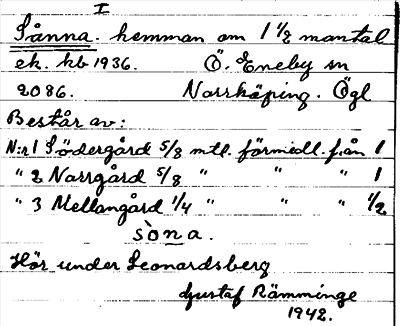 I
Sånna. hemman om 1 1/2 mantal
ek. kb 1936. Ö. Eneby sn
2086. Norrköping. Ögl
Består av:
N:r 1 Södergård 5/8 mtl. förmedl. från 1
" 2 Norrgård 5/8 " " " 1
" 3 Mellangård 1/4 " " 1/2
sòna.
Hör under Leonardsberg
Gustaf Rämminge
1942.